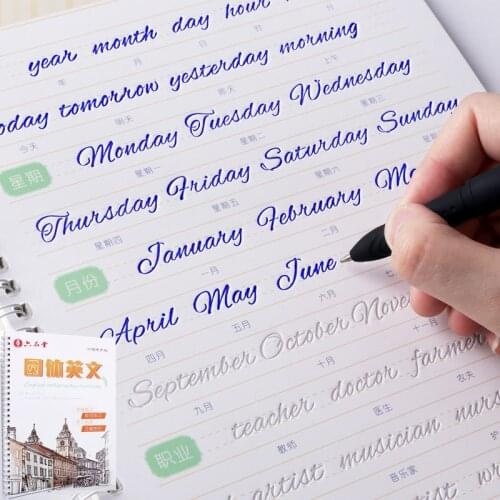 year month day hour
年 月 日 时
today tomorrow yesterday morning
今天 明天 昨天 上午
星期
Monday Tuesday Wednesday
星期一 星期二 星期三
Thursday Friday Saturday Sunday
星期四 星期五 星期六 星期日
月份
January February Ma
一月 二月
April May June
四月 五月 六月
September October Novem
九月 十月 十一月
职业
teacher doctor farmer
教师 医生 农夫
artist musician nurs
音乐家
artist
六品堂
圆体英文